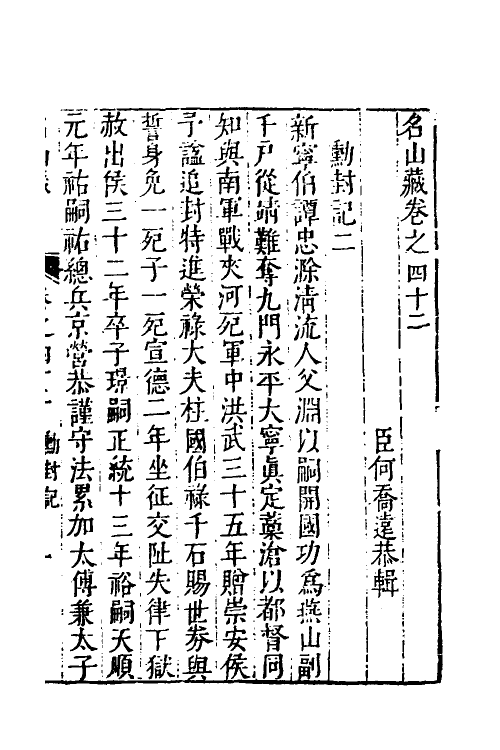 名山藏卷之四十二
臣何喬遠恭輯
勳封記二
新寧伯譚忠滁清流人父淵以嗣開國功爲燕山副
千戶從靖難奪九門永平大寧眞定藁滄以都督同
知與南軍戰夾河死軍中洪武三十五年贈崇安侯
予諡追封特進榮祿大夫柱國伯祿千石賜世券與
誓身免一死子一死宣德二年坐征交阯失律下獄
赦出侯三十二年卒子璟嗣正統十三年裕嗣天順
元年祐嗣祐總兵京營恭謹守法累加太傅兼太子
勳封記 一